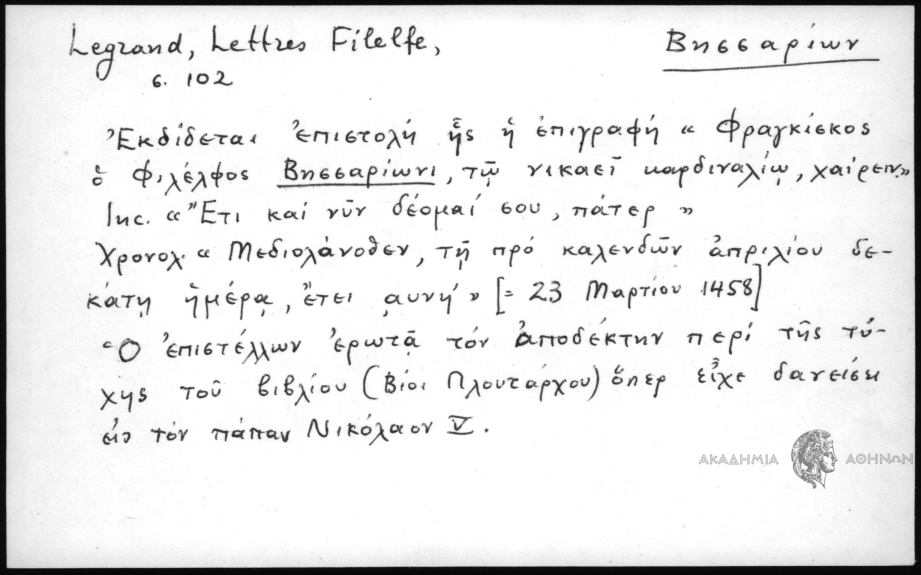 Legrand, Lettres Filelfe, Βησσαρίων
σ. 102
Ἐκδίδεται ἐπιστολή ἧς ἡ ἐπιγραφή « Φραγκίσκος
ὁ Φιλέλφος Βησσαρίωνι, τῷ νικαεῖ καρδιναλίῳ, χαίρειν.»
Inc. «Ἔτι καί νῦν δέομαί σου, πάτερ »
Χρονολ. « Μεδιολάνοθεν, τῇ πρό καλενδῶν ἀπριλίου δε-
κάτῃ ἡμέρᾳ, ἔτει ͵αυνή» [= 23 Μαρτίου 1458]
Ὁ ἐπιστέλλων ἐρωτᾷ τόν ἀποδέκτην περί τῆς τύ-
χης τοῦ βιβλίου (Βίοι Πλουτάρχου) ὅπερ εἶχε δανείσει
εἰς τόν πάπαν Νικόλαον V.
ΑΚΑΔΗΜΙΑ ΑΘΗΝΩΝ